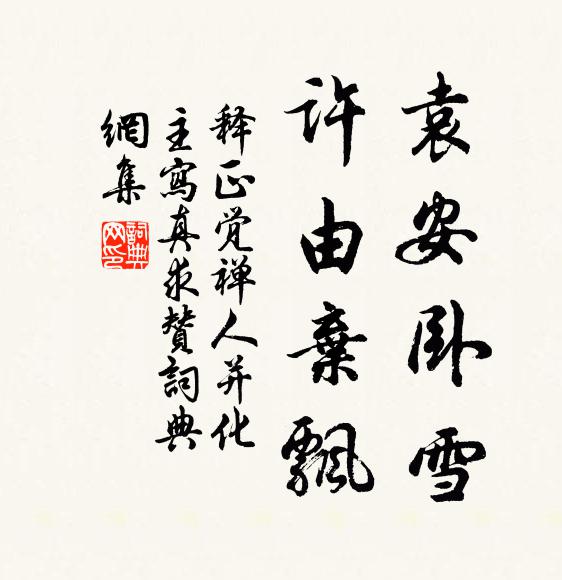 袁安卧雪
许由棄飄
释正觉禅人并化
主寫真求贊詞典
網集
詞典
网印